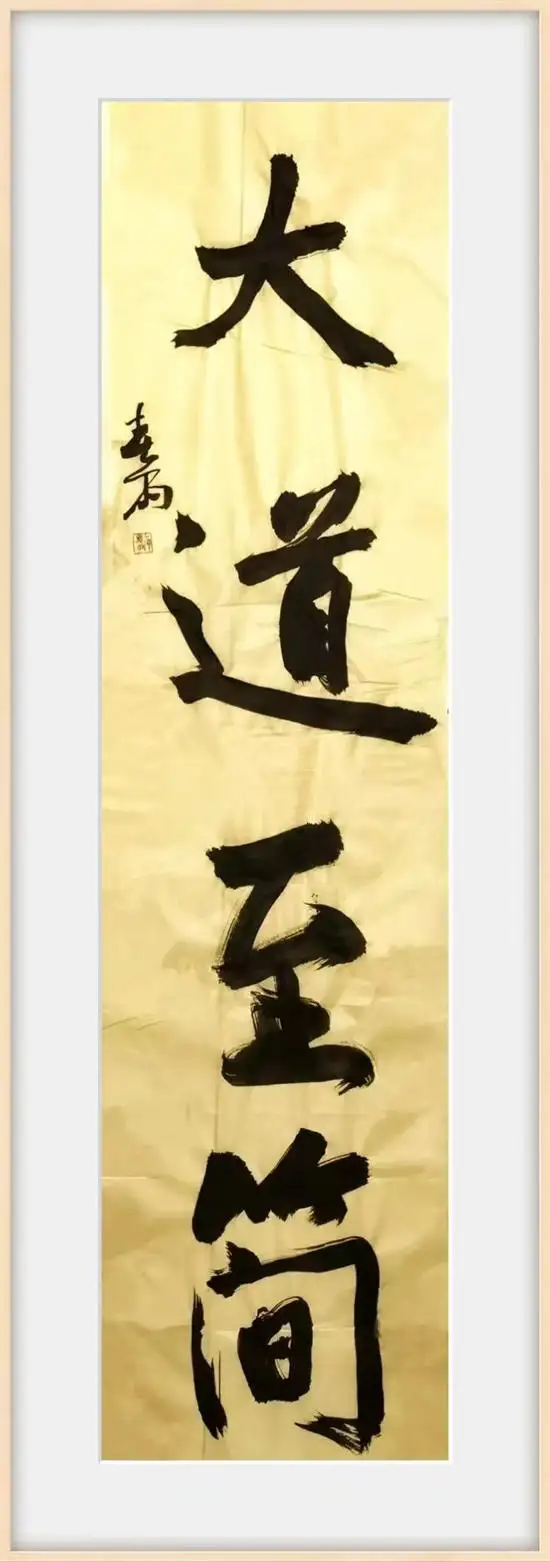 大道至简
春雨